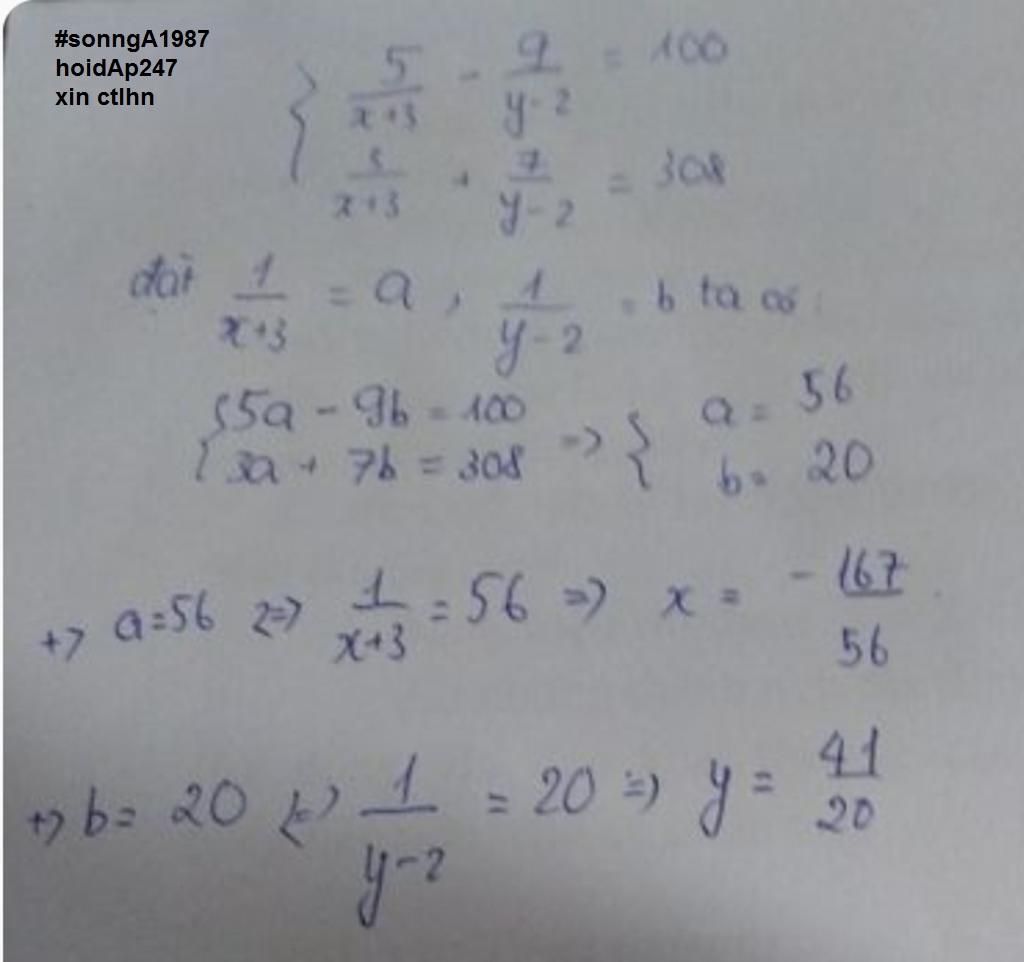 #sonngA1987
hoidAp247
xin ctlhn
{ 5/(x+3) - 9/(y-2) = 100
3/(x+3) + 7/(y-2) = 308
đặt 1/(x+3) = a, 1/(y-2) = b ta có:
{ 5a - 9b = 100 => { a = 56
3a + 7b = 308 b = 20
+> a=56 <=> 1/(x+3) = 56 => x = -167/56
+> b= 20 <=> 1/(y-2) = 20 => y = 41/20